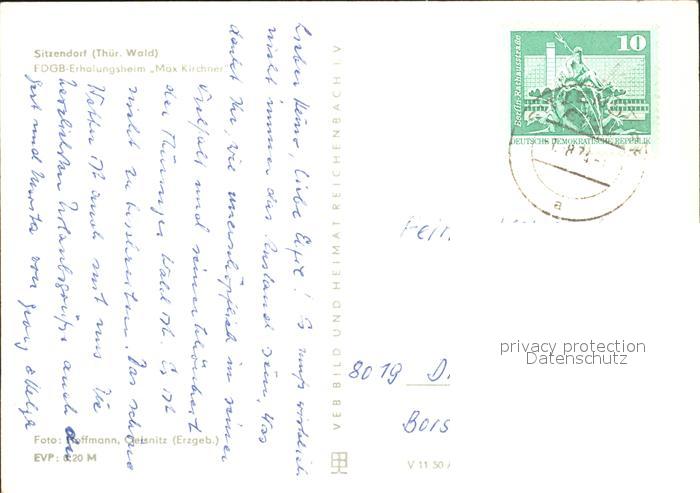 Sitzendorf (Thür. Wald)
FDGB-Erholungsheim „Max Kirchner
Lieber Heinz, liebe
! Es muß wirklich
nicht immer das Ausland sein. Was
denkt Ihr, wie unerschöpflich in seiner
Vielfalt und seiner Schönheit
der Thüringer Wald ist. Es ist
nicht zu beschreiben. Das schöne
Wetter ist auch mit uns. Die
herzlichsten Urlaubsgrüße auch an
Gert und von Georg & Helga
Foto: Hoffmann, Oelsnitz (Erzgeb.)
EVP: 0,20 M
VEB BILD UND HEIMAT REICHENBACH I. V
V 11 50 /
10
Berlin-Rathausstraße
DEUTSCHE DEMOKRATISCHE REPUBLIK
a
8019 D
Bors
privacy protection
Datenschutz